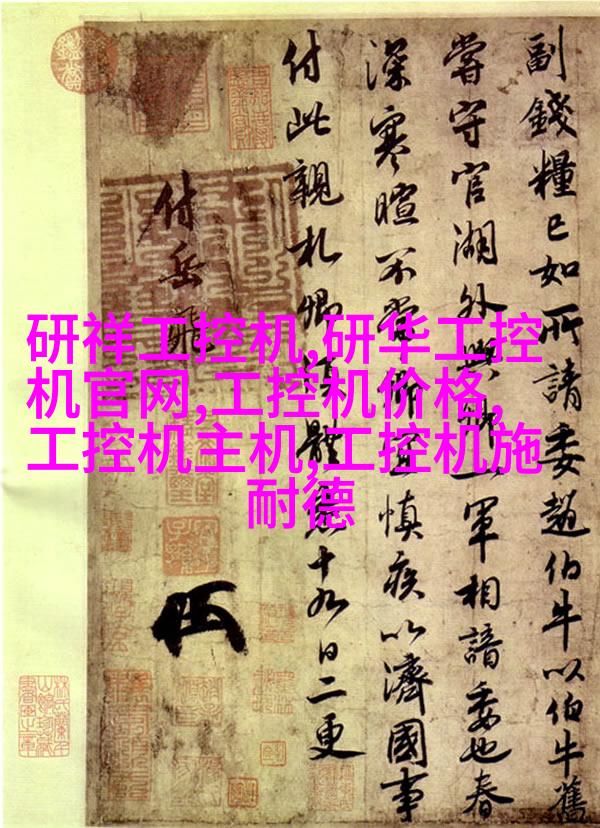 研祥工控机,研华工控
机官网,工控机价格,
工控机主机,工控机施
耐德
副錢糧已如所請委趙伯牛以伯牛舊
嘗守官湖外與卿一軍相諳委也春
深寒暄不常卿宜慎疾以濟國事
付此親札卿須體悉十九日二更
付岳飛